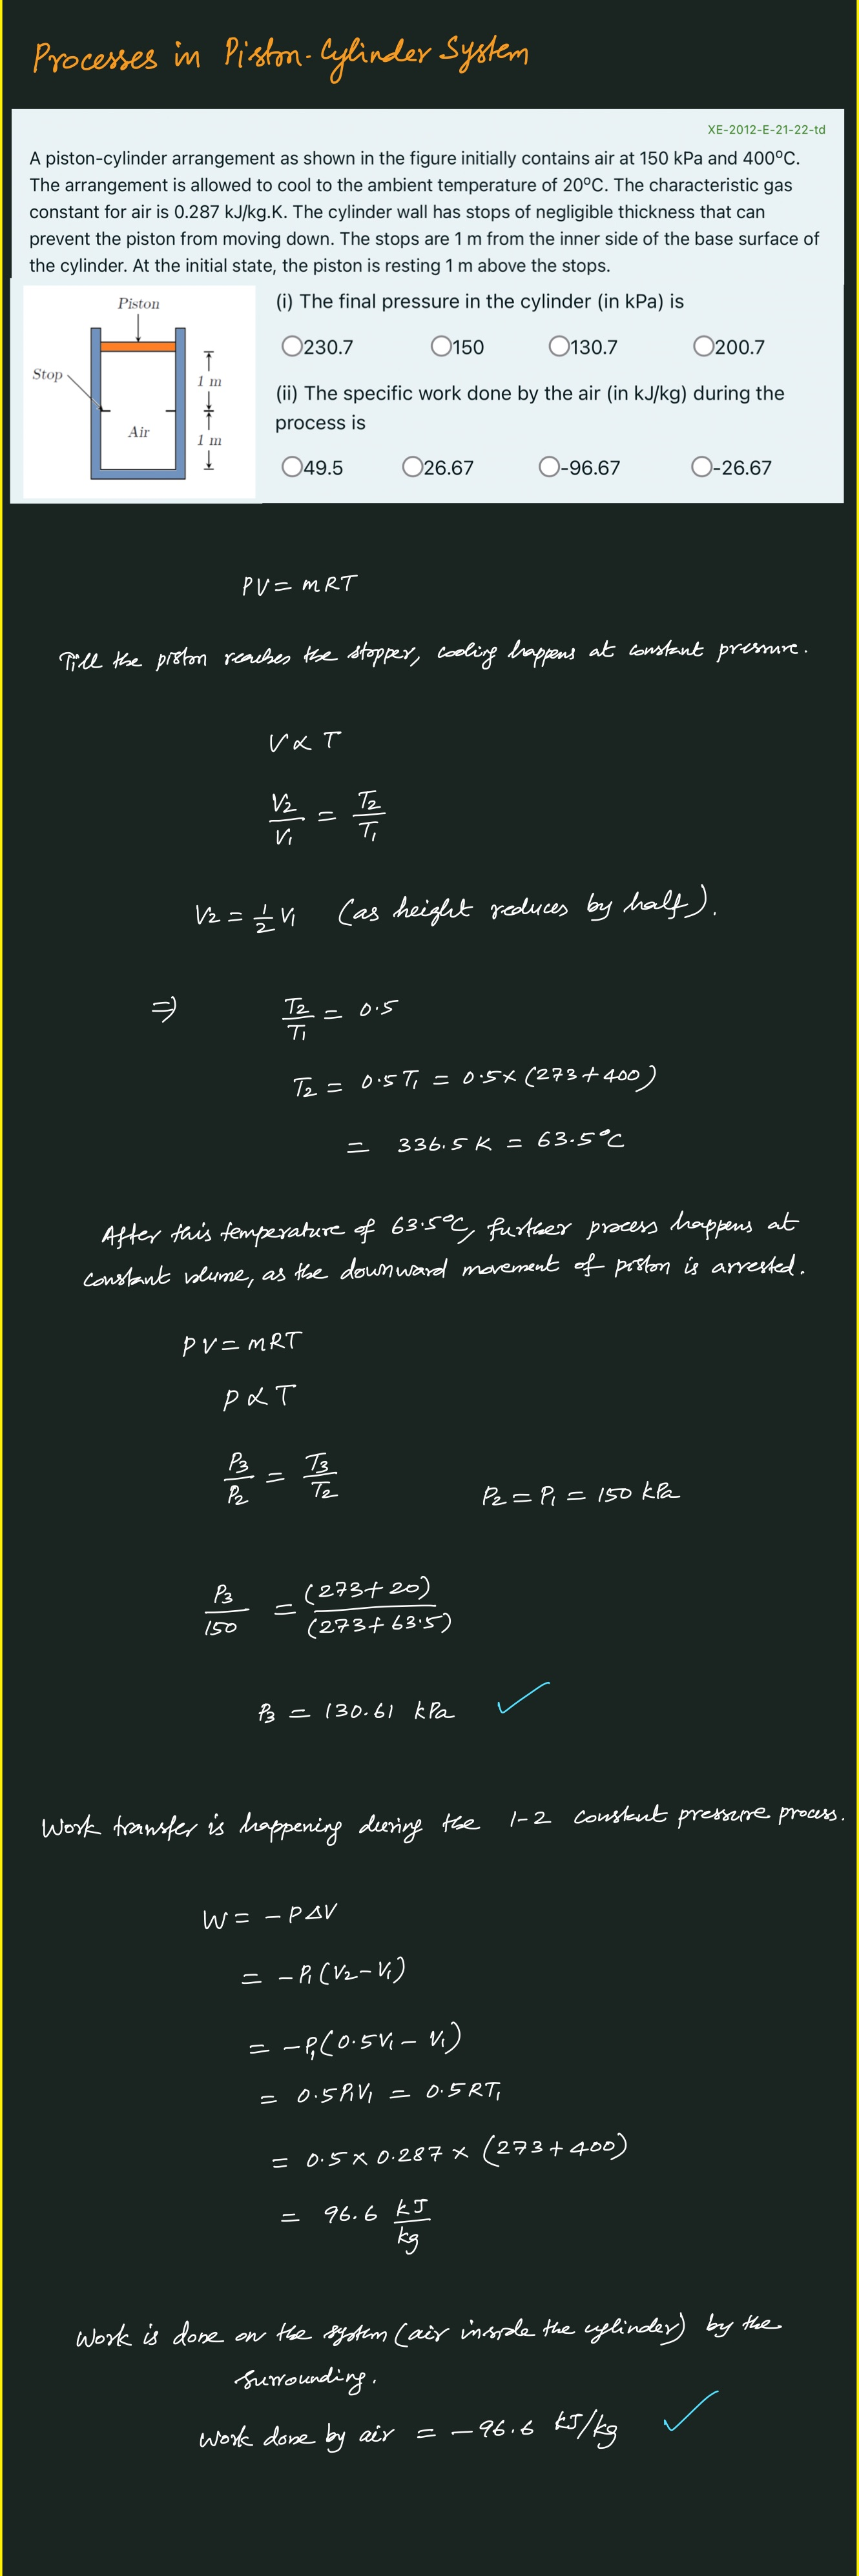 Processes in Piston-Cylinder System
XE-2012-E-21-22-td
A piston-cylinder arrangement as shown in the figure initially contains air at 150 kPa and 400⁰C.
The arrangement is allowed to cool to the ambient temperature of 20⁰C. The characteristic gas
constant for air is 0.287 kJ/kg.K. The cylinder wall has stops of negligible thickness that can
prevent the piston from moving down. The stops are 1 m from the inner side of the base surface of
the cylinder. At the initial state, the piston is resting 1 m above the stops.
Piston
Stop
1 m
Air
1 m
(i) The final pressure in the cylinder (in kPa) is
230.7 150 130.7 200.7
(ii) The specific work done by the air (in kJ/kg) during the
process is
49.5 26.67 -96.67 -26.67
PV = mRT
Till the piston reaches the stopper, cooling happens at constant pressure.
V ∝ T
V₂/V₁ = T₂/T₁
V₂ = 1/2 V₁ (as height reduces by half).
⇒ T₂/T₁ = 0.5
T₂ = 0.5T₁ = 0.5 × (273+400)
= 336.5 K = 63.5°C
After this temperature of 63.5°C, further process happens at
constant volume, as the downward movement of piston is arrested.
PV = mRT
P ∝ T
P₃/P₂ = T₃/T₂ P₂ = P₁ = 150 kPa
P₃/150 = (273+20)/(273+63.5)
P₃ = 130.61 kPa ✓
Work transfer is happening during the 1-2 constant pressure process.
W = -PΔV
= -P₁(V₂-V₁)
= -P₁(0.5V₁ - V₁)
= 0.5P₁V₁ = 0.5RT₁
= 0.5 × 0.287 × (273+400)
= 96.6 kJ/kg
Work is done on the system (air inside the cylinder) by the
surrounding.
Work done by air = -96.6 kJ/kg ✓